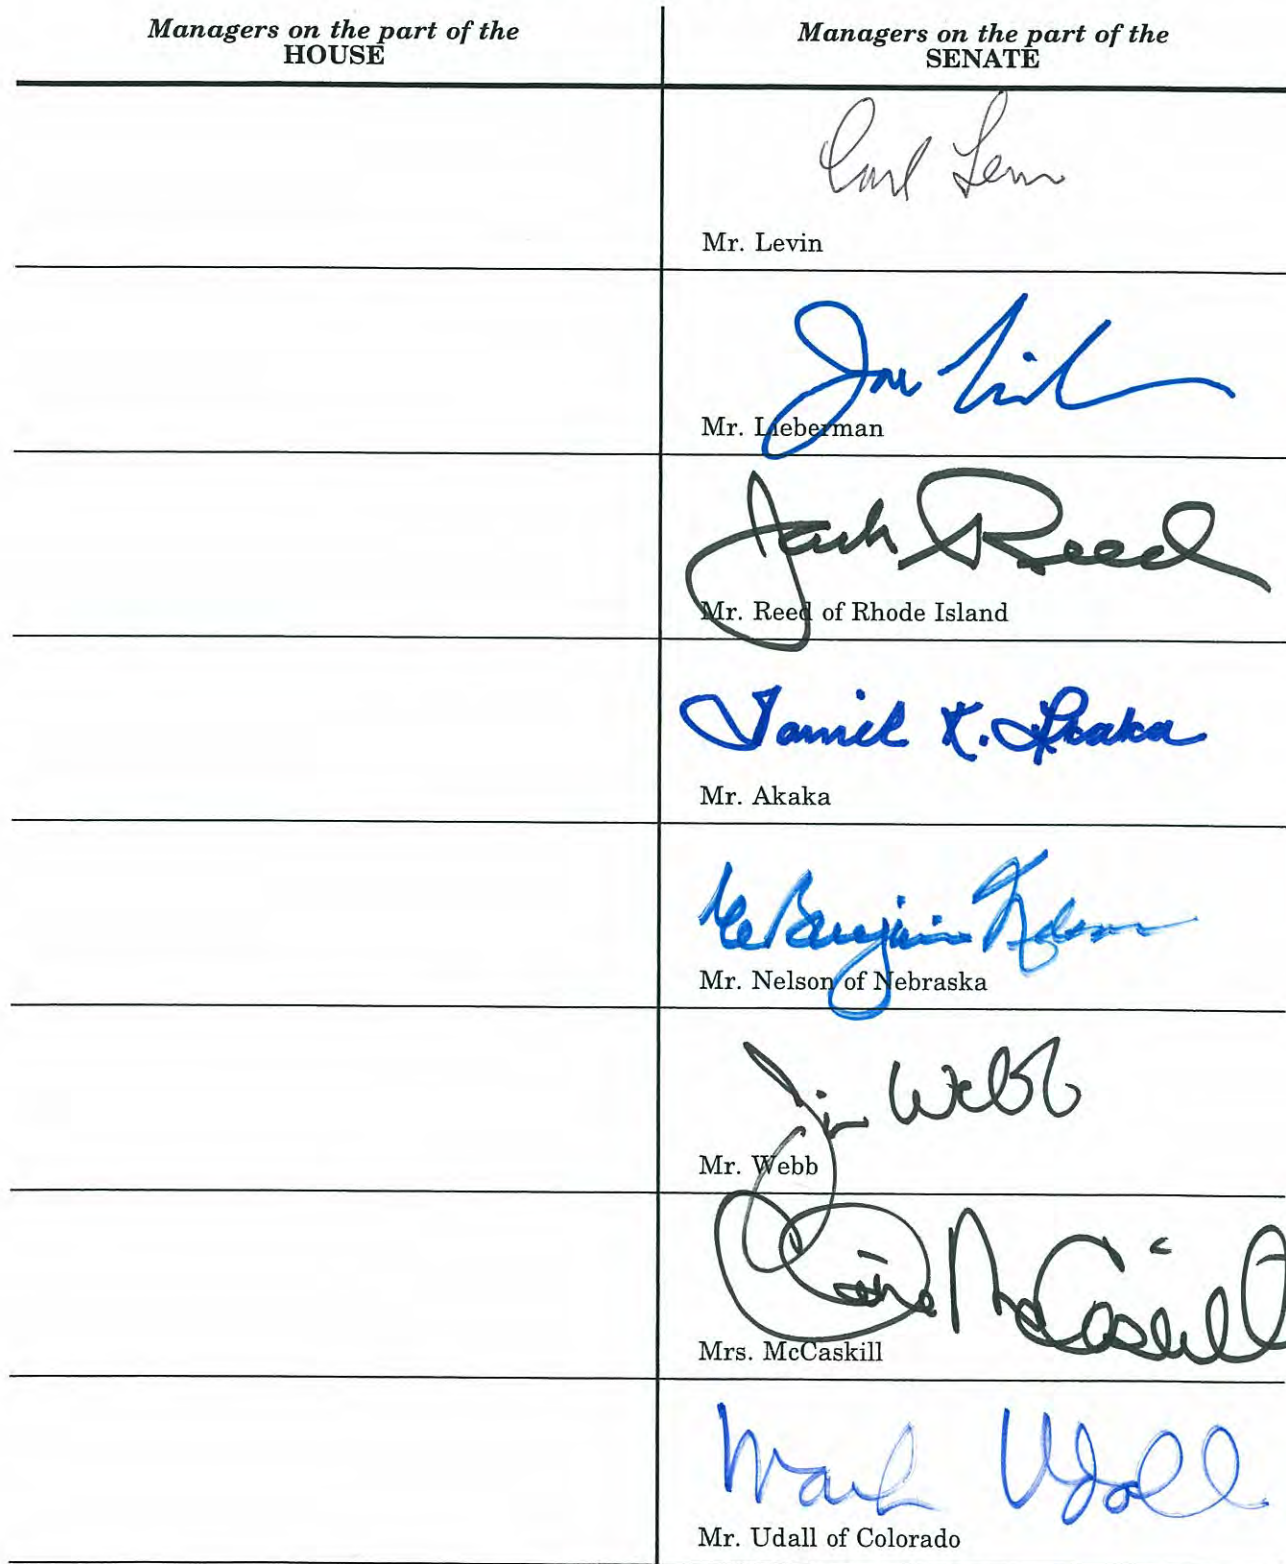 Managers on the part of the
HOUSE
Managers on the part of the
SENATE
Carl Levin
Mr. Levin
Joe Lieb
Mr. Lieberman
Jack Reed
Mr. Reed of Rhode Island
Daniel K. Akaka
Mr. Akaka
E. Benjamin Nelson
Mr. Nelson of Nebraska
Jim Webb
Mr. Webb
Claire McCaskill
Mrs. McCaskill
Mark Udall
Mr. Udall of Colorado